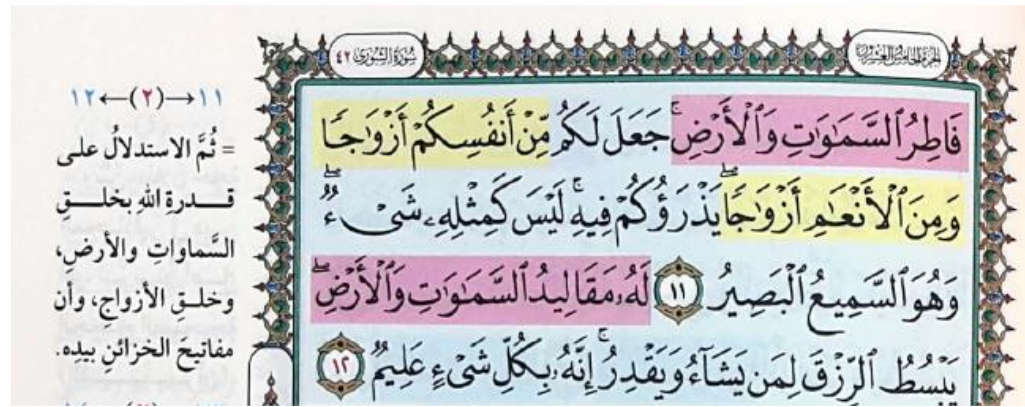 الجزء الخامس والعشرون
سورة الشورى ٤٢
فَاطِرُ ٱلسَّمَٰوَٰتِ وَٱلْأَرْضِ ۚ جَعَلَ لَكُم مِّنْ أَنفُسِكُمْ أَزْوَٰجًا
وَمِنَ ٱلْأَنْعَٰمِ أَزْوَٰجًا ۖ يَذْرَؤُكُمْ فِيهِ ۚ لَيْسَ كَمِثْلِهِۦ شَىْءٌ ۖ
وَهُوَ ٱلسَّمِيعُ ٱلْبَصِيرُ ١١ لَهُۥ مَقَالِيدُ ٱلسَّمَٰوَٰتِ وَٱلْأَرْضِ ۖ
يَبْسُطُ ٱلرِّزْقَ لِمَن يَشَآءُ وَيَقْدِرُ ۚ إِنَّهُۥ بِكُلِّ شَىْءٍ عَلِيمٌ ١٢
١١→(٢)←١٢
= ثُمَّ الاستدلالُ على
قـــدرةِ اللهِ بخلــقِ
السَّماواتِ والأرضِ،
وخلقِ الأزواج، وأن
مفاتيحَ الخزائنِ بيدِه.